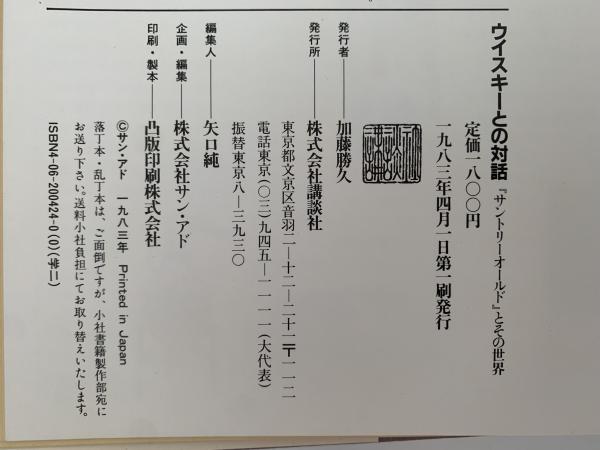 ウイスキーとの対話 『サントリーオールド』とその世界
定価一八〇〇円
一九八三年四月一日第一刷発行
発行者——加藤勝久
発行所——株式会社講談社
東京都文京区音羽二—一二—二一〒一一二
電話東京(〇三)九四五—一一一一(大代表)
振替東京八—三九三〇
編集人——矢口純
企画・編集——株式会社サン・アド
印刷・製本——凸版印刷株式会社
©サン・アド 一九八三年 Printed in Japan
落丁本・乱丁本は、ご面倒ですが、小社書籍製作部宛に
お送り下さい。送料小社負担にてお取り替えいたします。
ISBN4-06-200424-0(0)(学二)